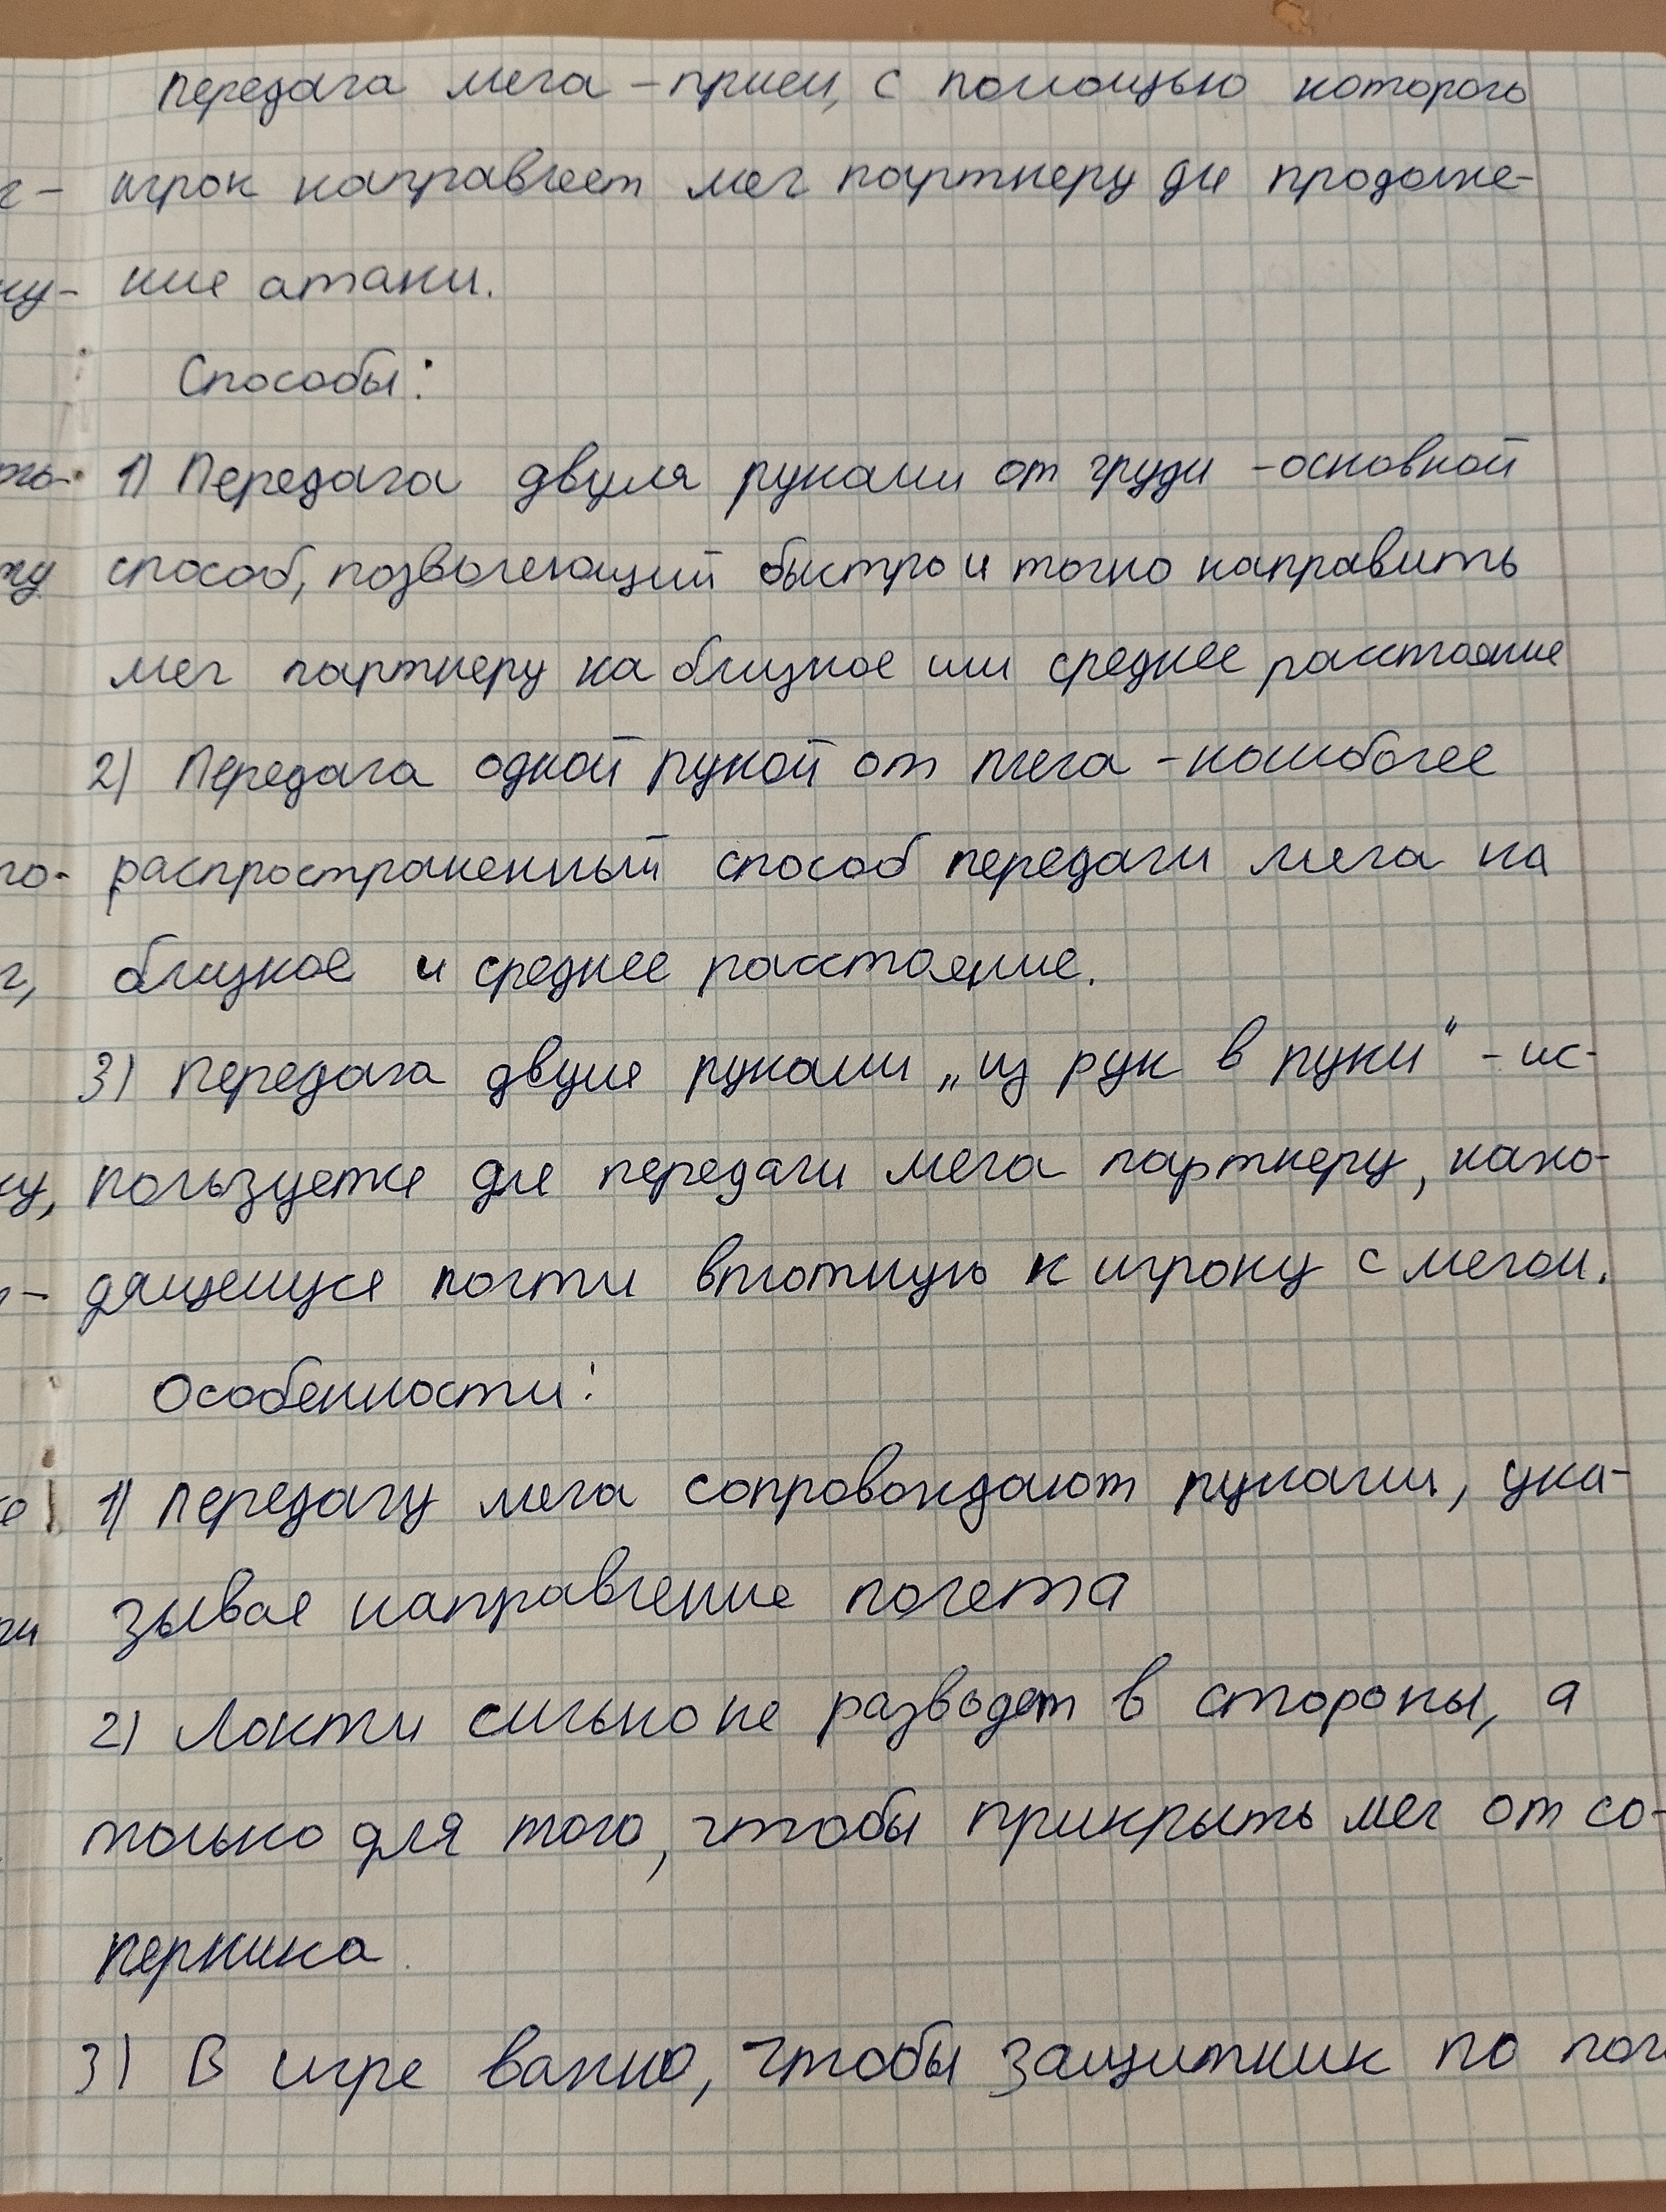 Передача мяча - прием, с помощью которого
игрок направляет мяч партнеру для продолже-
ние атаки.
Способы:
1) Передача двумя руками от груди - основной
способ, позволяющий быстро и точно направить
мяч партнеру на близкое или среднее расстояние
2) Передача одной рукой от плеча - наиболее
распространенный способ передачи мяча на
близкое и среднее расстояние.
3) Передача двумя руками „из рук в руки“ - ис-
пользуется для передачи мяча партнеру, нахо-
дящемуся почти вплотную к игроку с мячом.
Особенности:
1) Передачу мяча сопровождают руками, ука-
зывая направление полета
2) Локти сильно не разводят в стороны, а
только для того, чтобы прикрыть мяч от со-
перника
3) В игре важно, чтобы защитник по